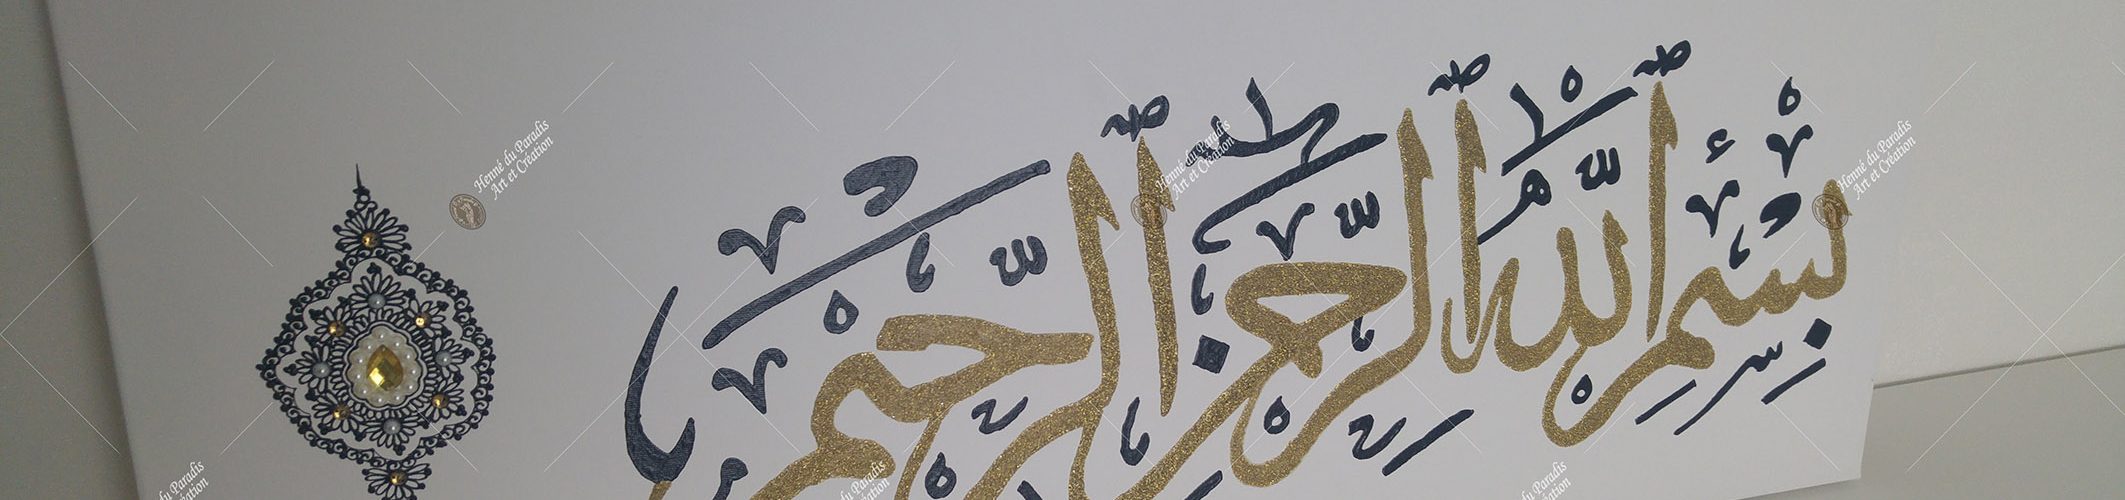 بِسْمِ ٱللَّٰهِ ٱلرَّحْمَٰنِ ٱلرَّحِيمِ
Henné du Paradis
Art et Création
Henné du Paradis
Art et Création
Henné du Paradis
Art et Création
du Paradis
ation
du Paradis
ation
du Paradis
ation